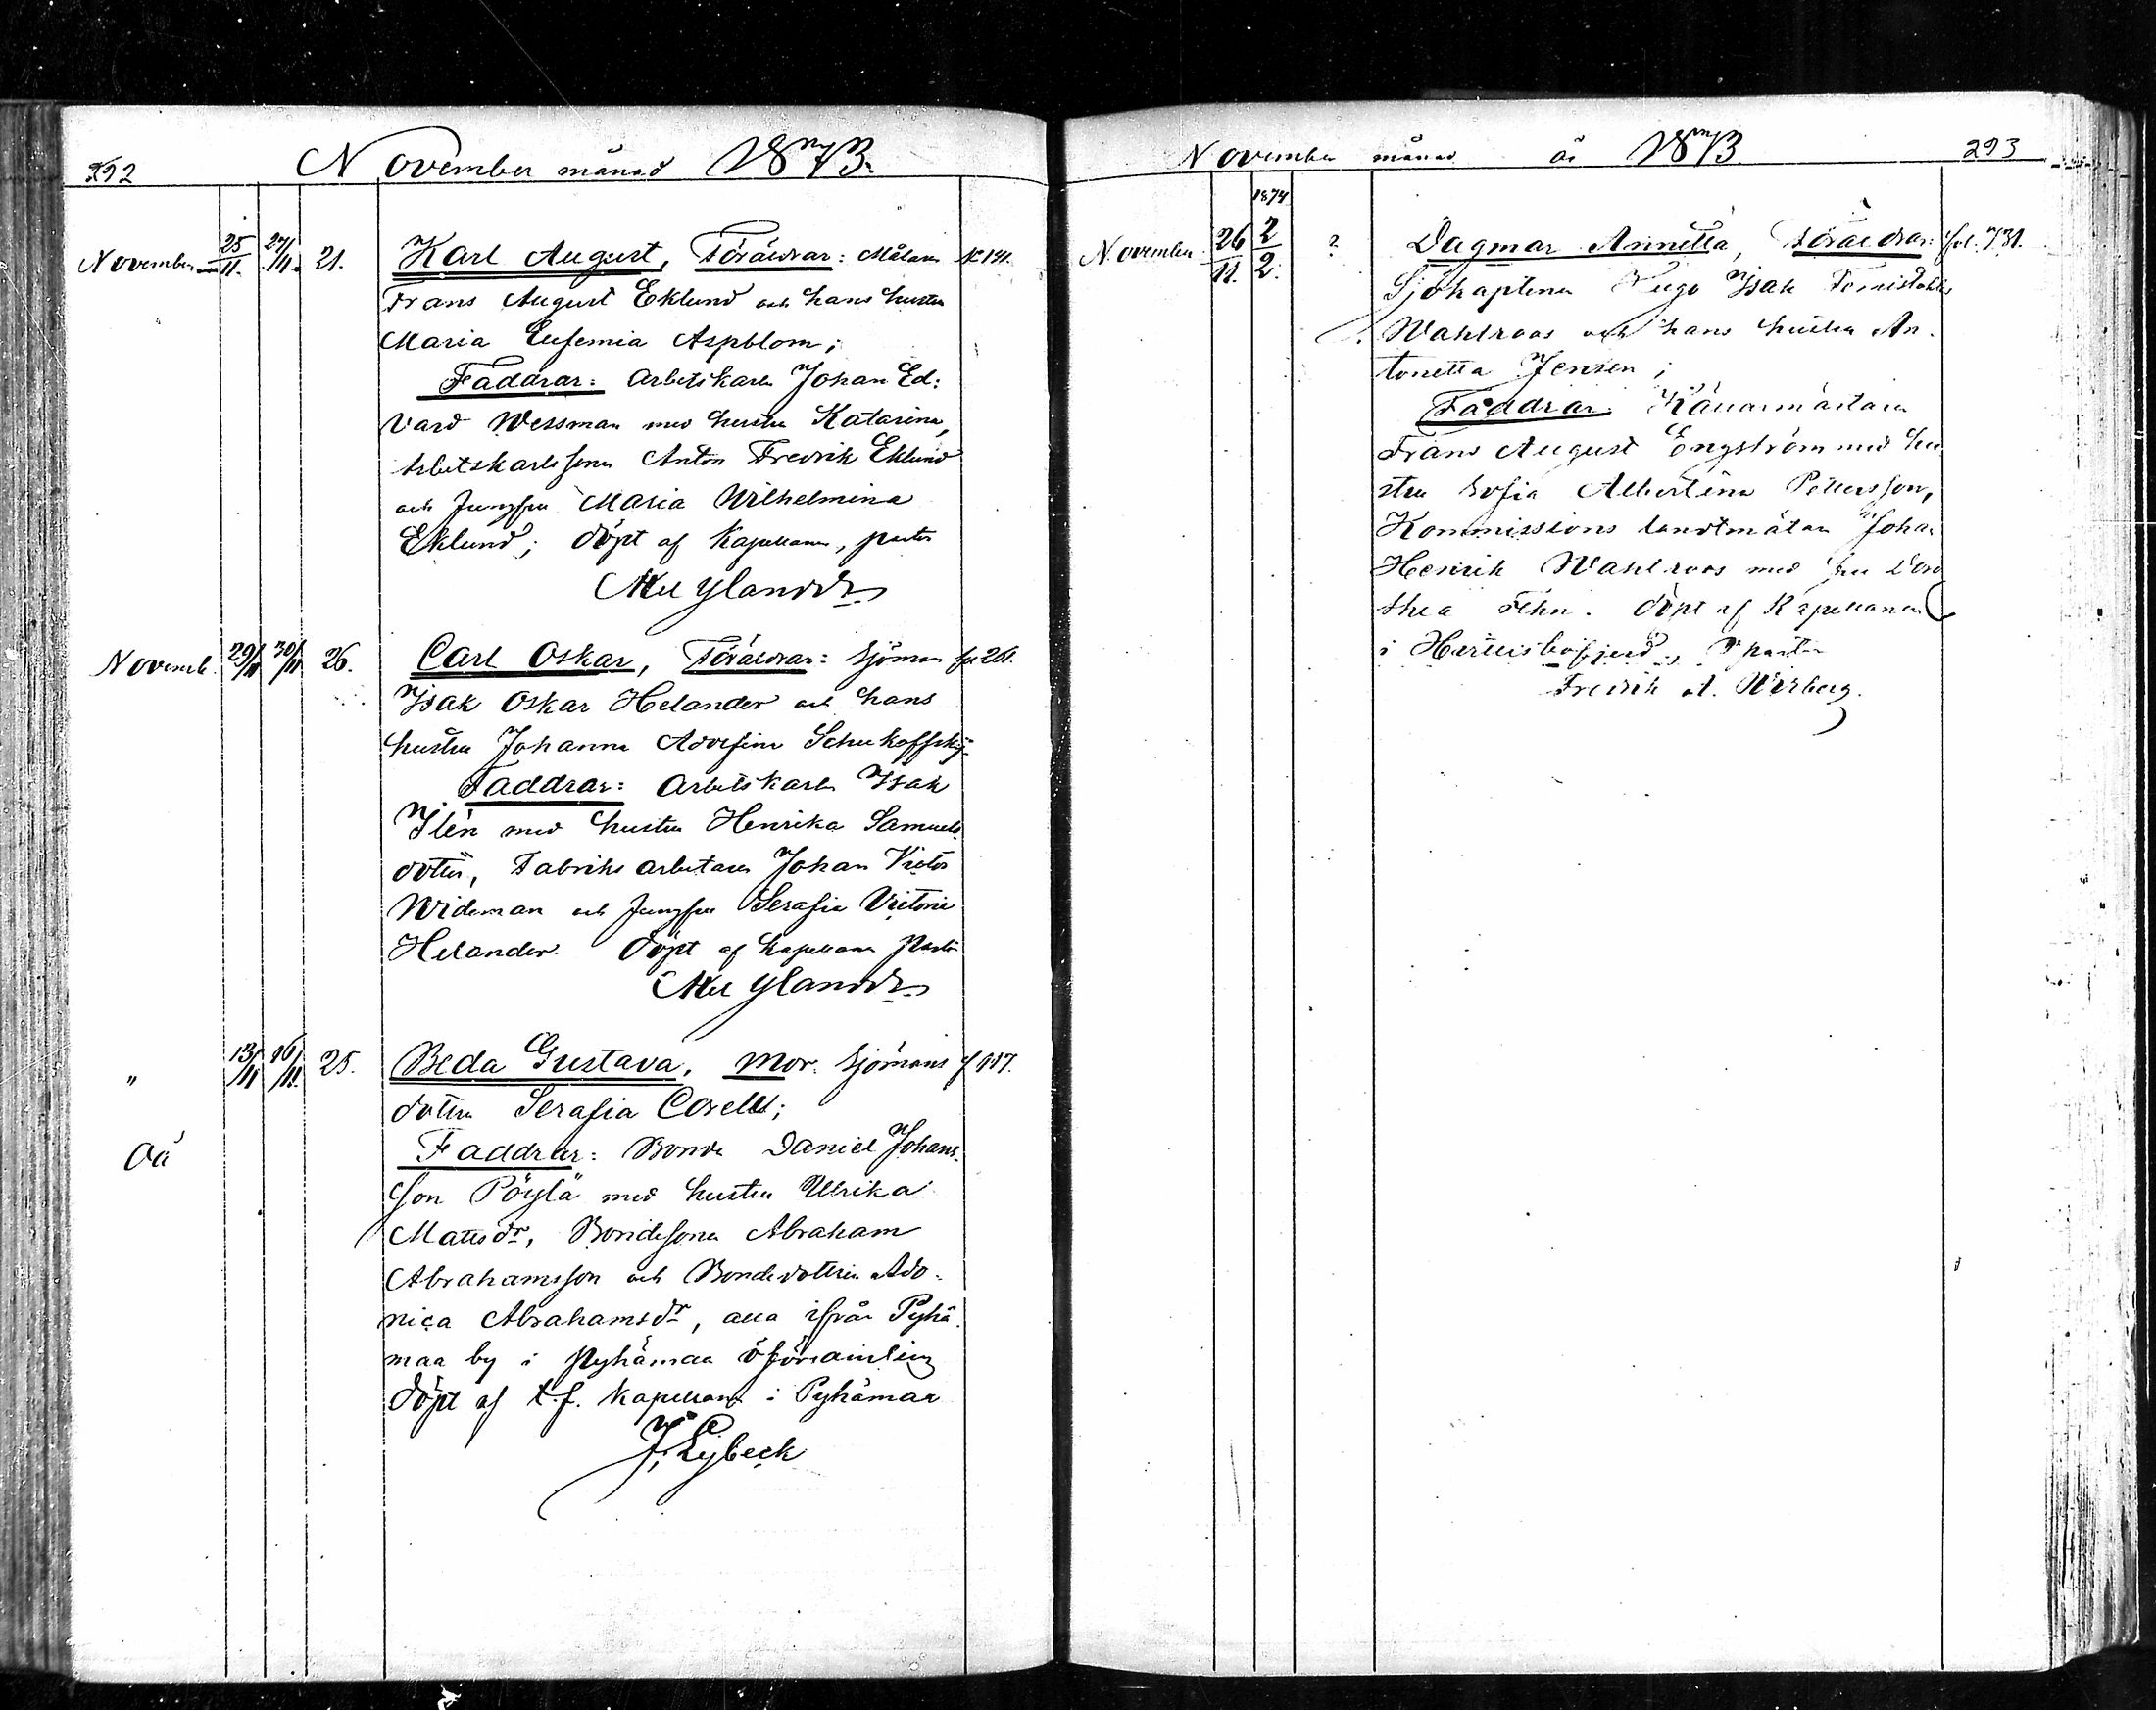 292 November månad 1873.
November 25/11. 27/11. 21. Karl August, Föräldrar: Målaren N:o 141.
Frans August Eklund och hans hustru
Maria Eufemia Aspblom;
Faddrar: Arbetskarlen Johan Ed:
vard Wessman med hustru Katarina,
Arbetskarlssonen Anton Fredrik Eklund
och Jungfru Maria Wilhelmina
Eklund; döpt af Kapellanen, pastor
Novemb. 29/11 30/11 26. Carl Oskar, Föräldrar: Sjöman
Isak Oskar Helander och hans
hustru Johanna Adolfina Schukoffsky
Faddrar: Arbetskarlen Isak
Ilén med hustru Henrika Samuels
dotter, Fabriks arbetaren Johan Victor
Wideman och Jungfru Serafia Victoria
Helander. Döpt af Kapellanen Pastor
" 13/11 16/11. 25. Beda Gustava, Mor. Sjömans
dottren Serafia Corell;
Oä
Faddrar: Bonden Daniel Johans
son Pöylä med hustru Ulrika
Matts dr, Bondesonen Abraham
Abrahamsson och Bondedottren Ado-
nica Abrahamsdr, alla ifrån Pyhä
maa by i Pyhämaa
döpt af t.f. Kapellanen i Pyhämaa
J. Lybeck
November månad år 1873. 293
1874
November 26/11. 2/2. ? Dagmar Annetta, Föräldrar: fol. 731.
Sjökaptenen Hugo Isak
Wahlroos och hans hustru An-
tonetta Jensen;
Faddrar: Källarmästaren
Frans August Engström med hu
stru Sofia Albertina Pettersson,
Kommissions landtmätaren Johan
Henrik Wahlroos med fru Doro
thea Fehn. döpt af Kapellanen
i Pastor
Fredrik A. Wirberg.